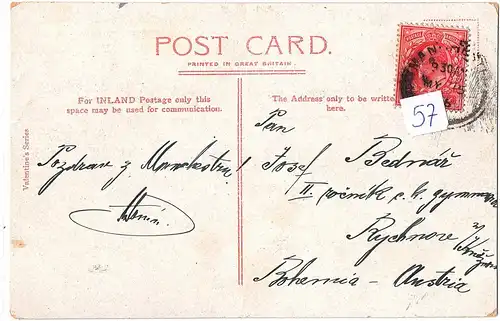 POST CARD.
PRINTED IN GREAT BRITAIN.
For INLAND Postage only this
space may be used for communication.
The Address only to be written
here.
Valentine's Series
57
Pozdrav z Manchestru!
Pan
Josef Bednář
II. ročník c. k. gymnas
Rychnov
Bohemia - Austria